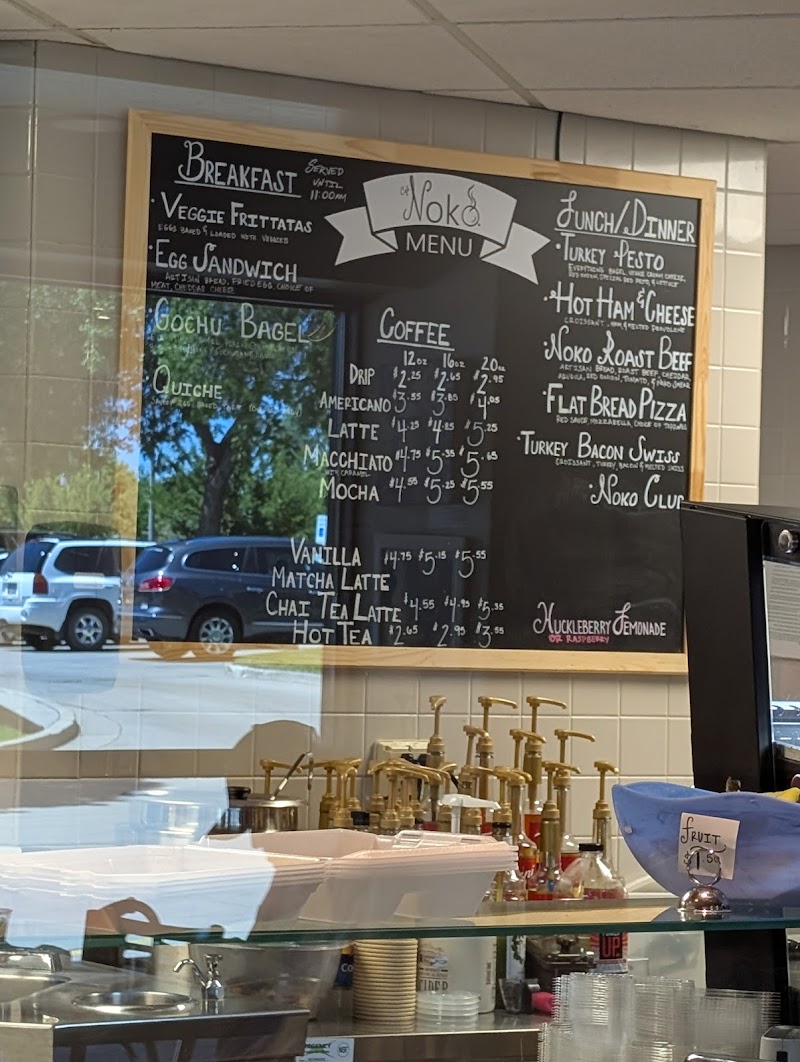 BREAKFAST
SERVED
UNTIL
11:00AM
· VEGGIE FRITTATAS
EGGS BAKED & LOADED WITH VEGGIES
· EGG SANDWICH
ARTISAN BREAD, FRIED EGG, CHOICE OF
MEAT, CHEDDAR CHEESE
· GOCHU BAGEL
QUICHE
NOKO
MENU
COFFEE
12oz 16oz 20oz
DRIP $2.25 $2.65 $2.95
AMERICANO $3.55 $3.85 $4.05
LATTE $4.25 $4.85 $5.25
MACCHIATO $4.75 $5.35 $5.65
WITH CARAMEL
MOCHA $4.55 $5.25 $5.55
VANILLA $4.75 $5.15 $5.55
MATCHA LATTE
CHAI TEA LATTE $4.55 $4.95 $5.35
HOT TEA $2.65 $2.95 $3.55
LUNCH/DINNER
· TURKEY PESTO
EVERYTHING BAGEL, VEGGIE CREAM CHEESE,
RED ONION, SPECIAL RED PESTO, & LETTUCE
· HOT HAM & CHEESE
CROISSANT, HAM, & MELTED PROVOLONE
· NOKO ROAST BEEF
ARTISAN BREAD, ROAST BEEF, CHEDDAR,
ARUGULA, RED ONION, TOMATO, & NOKO SMEAR
· FLAT BREAD PIZZA
RED SAUCE, MOZZARELLA, CHOICE OF TOPPINGS
· TURKEY BACON SWISS
CROISSANT, TURKEY, BACON & MELTED SWISS
· NOKO CLUB
HUCKLEBERRY LEMONADE
OR RASPBERRY
FRUIT
$1.50
UP